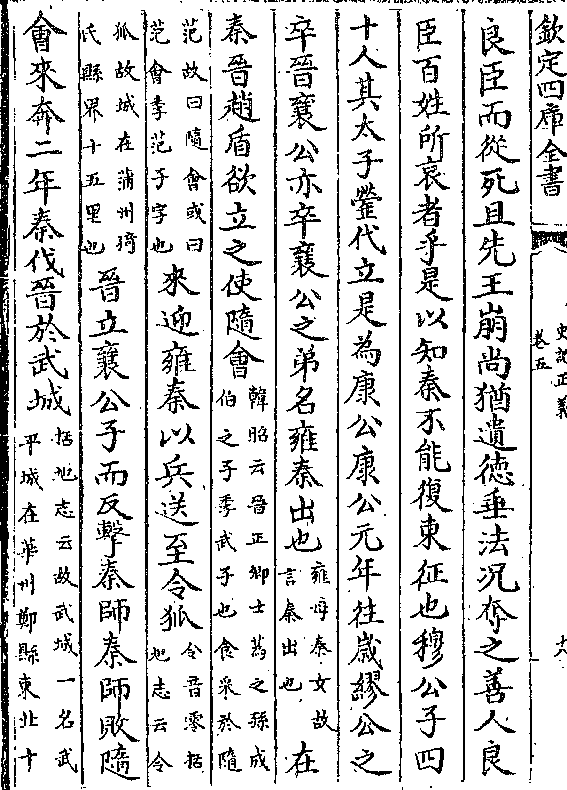 欽定四庫全書
史記正義
卷五
十六
良臣而從死且先王崩尚猶遺德垂法况奪之善人良
臣百姓所哀者乎是以知秦不能復東征也穆公子四
十人其太子罃代立是為康公康公元年往歲繆公之
卒晉襄公亦卒襄公之弟名雍秦出也雍母秦女故言秦出也在
秦晉趙盾欲立之使隨會韓昭云晉正卿士蒍之孫成伯之子季武子也食采於隨
范故曰隨會或曰范會季范子字也來迎雍秦以兵送至令狐令音零括地志云令
狐故城在蒲州猗氏縣界十五里也晉立襄公子而反擊秦師秦師敗隨
會來奔二年秦伐晉於武城括地志云故武城一名武平城在華州鄭縣東北十